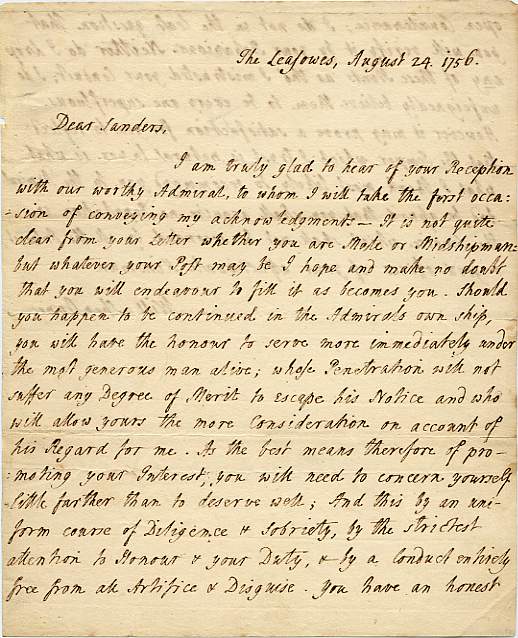 The Leasowes, August 24. 1756.
Dear Sanders,
I am truly glad to hear of your Reception
with our worthy Admiral, to whom I will take the first occa-
-sion of conveying my acknowledgments — It is not quite
clear from your Letter whether you are Mate or Midshipman=
but whatever your Post may be I hope and make no doubt
that you will endeavour to fill it as becomes you. Should
you happen to be continued in the Admirals own ship,
you will have the honour to serve more immediately under
the most generous man alive; whose Penetration will not
suffer any Degree of Merit to escape his Notice and who
will allow yours the more Consideration on account of
his Regard for me. As the best means therefore of pro-
-moting your Interest, you will need to concern yourself
little farther than to deserve well; And this by an uni-
form course of Diligence & Sobriety, by the strictest
attention to Honour & your Duty, & by a conduct entirely
free from all Artifice & Disguise. you have an honest